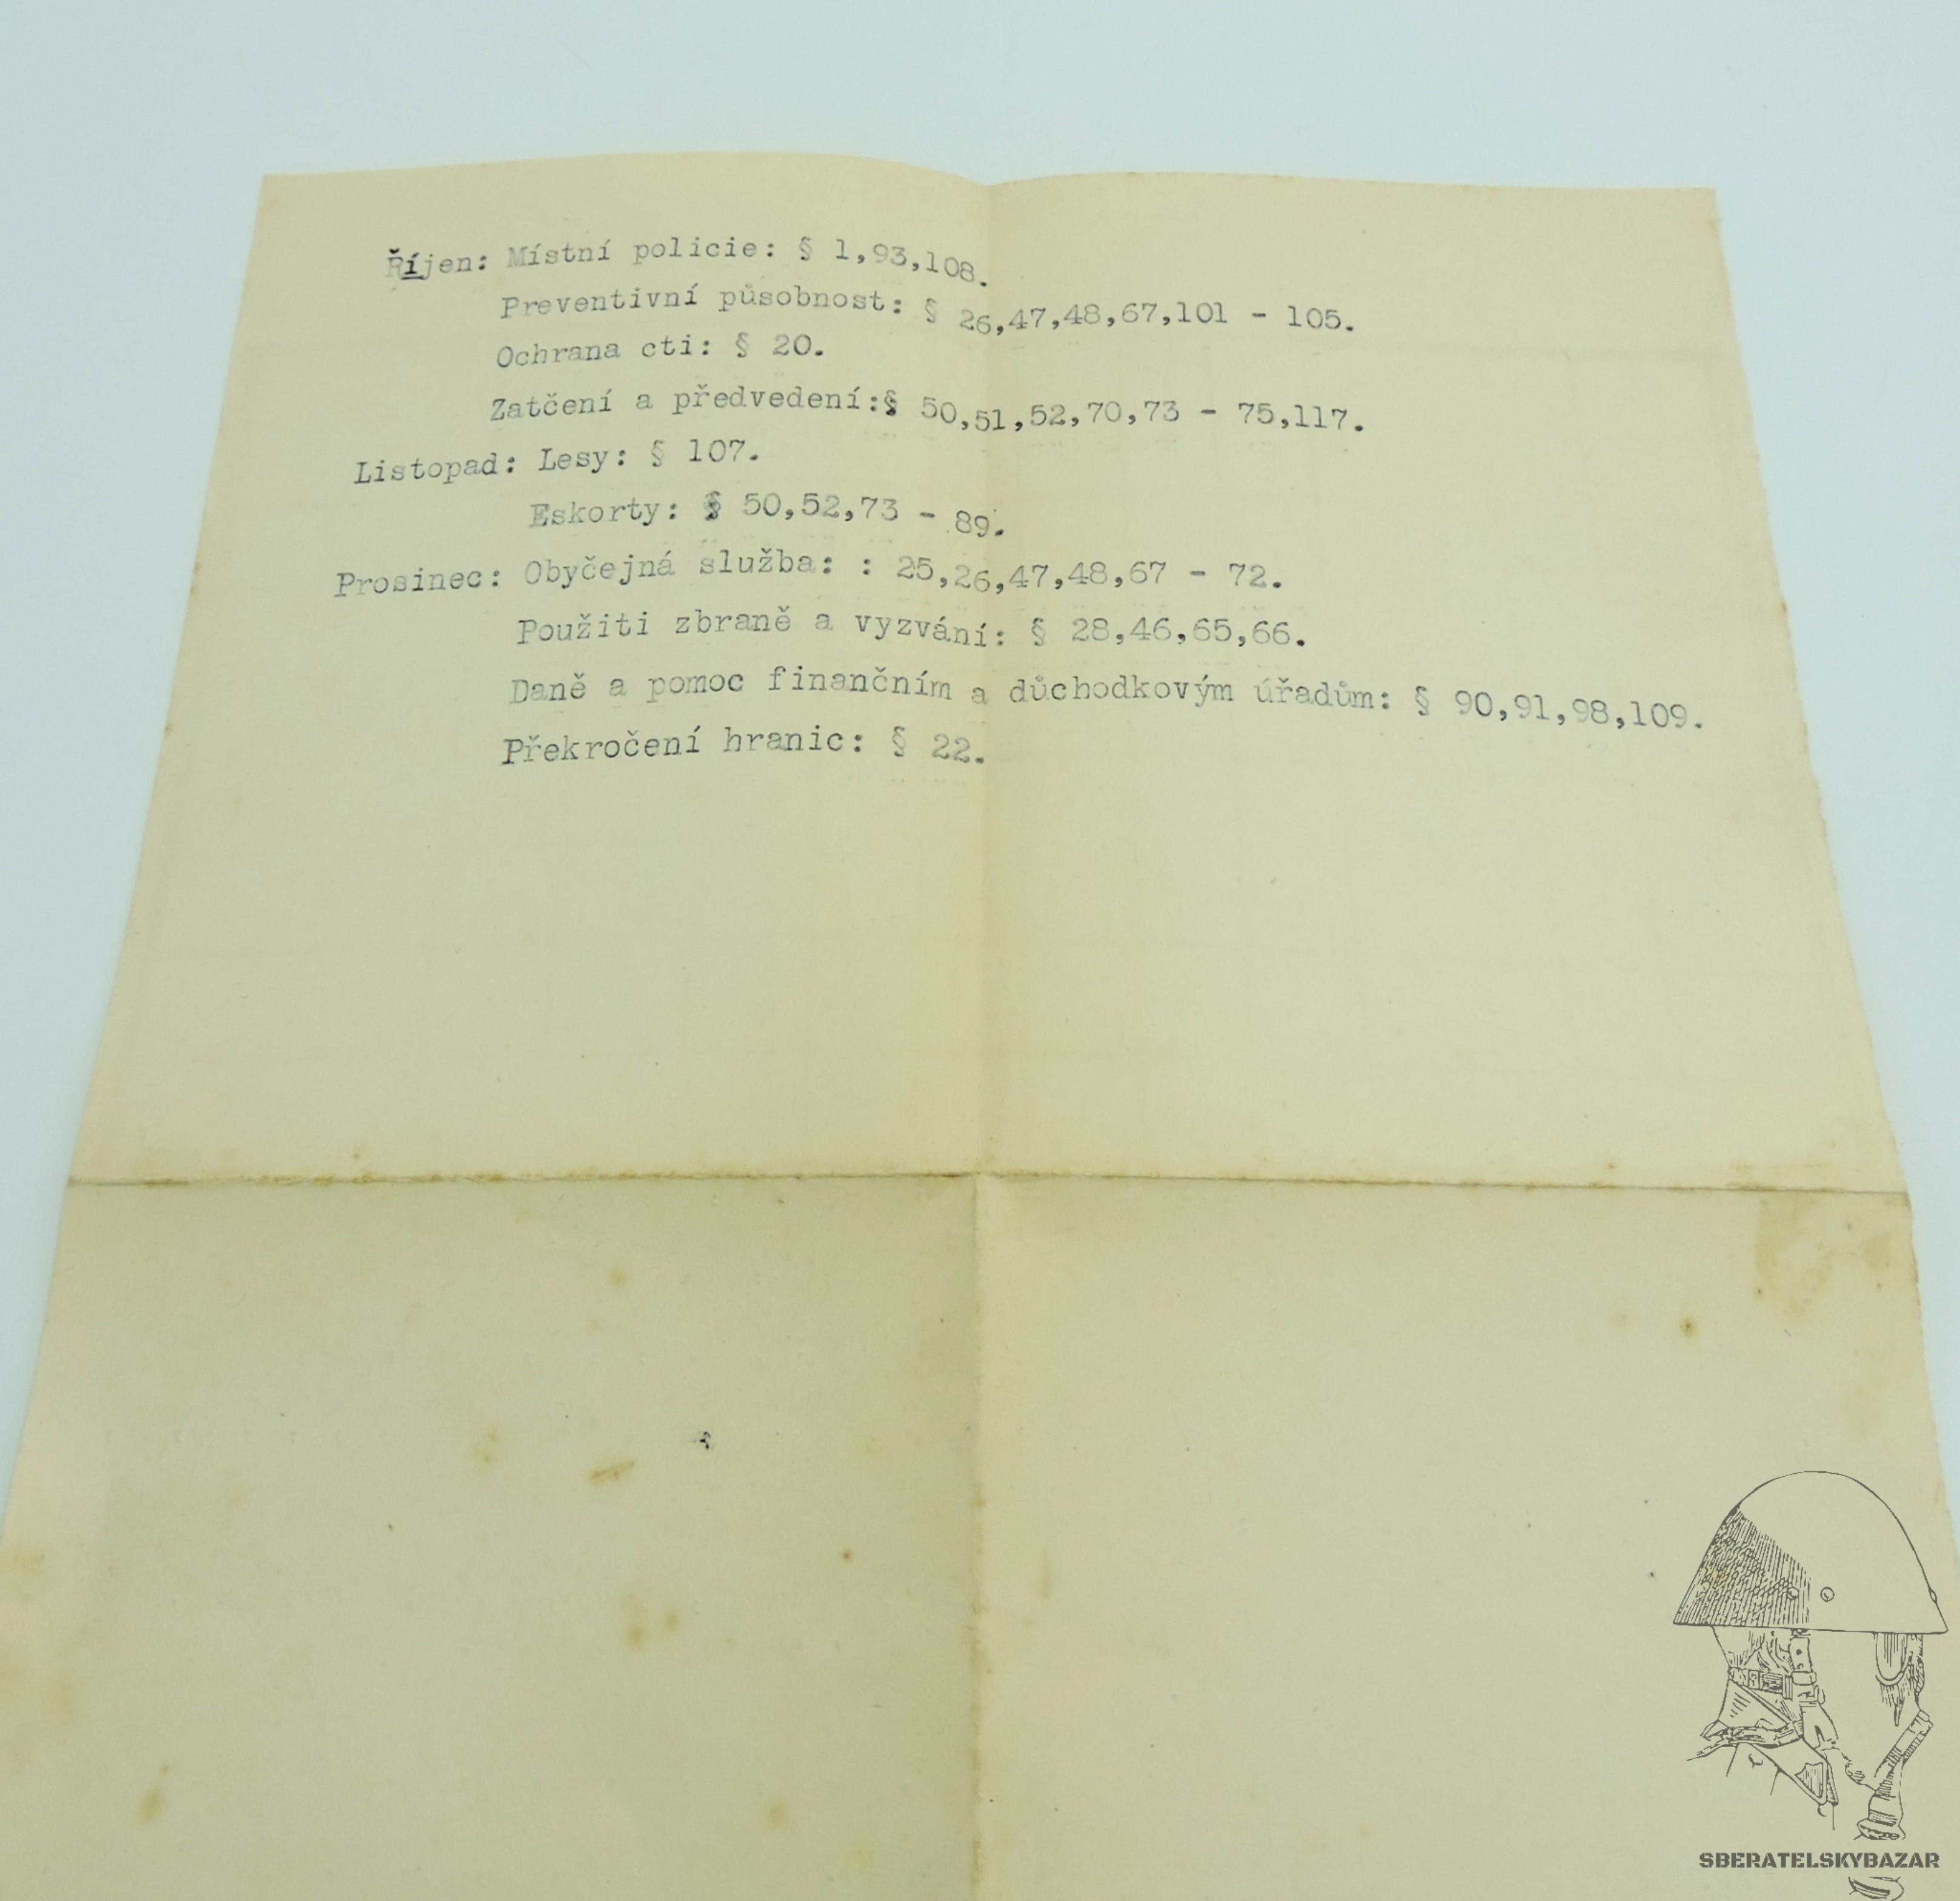 Říjen: Místní policie: § 1,93,108.
Preventivní působnost: § 26,47,48,67,101 - 105.
Ochrana cti: § 20.
Zatčení a předvedení:§ 50,51,52,70,73 - 75,117.
Listopad: Lesy: § 107.
Eskorty: § 50,52,73 - 89.
Prosinec: Obyčejná služba: : 25,26,47,48,67 - 72.
Použiti zbraně a vyzvání: § 28,46,65,66.
Daně a pomoc finančním a důchodkovým úřadům: § 90,91,98,109.
Překročení hranic: § 22.
SBERATELSKYBAZAR